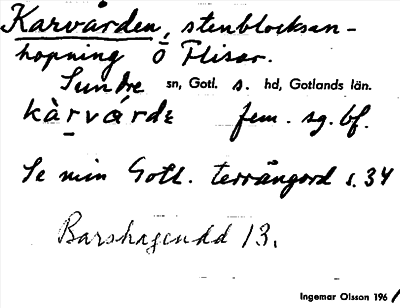 Karvården, stenblocksan-
hopning Ö Flisar.
Sundre sn, Gotl. S. hd, Gotlands län.
kàrvárdɛ fem. sg. bf.
Se min Gotl. terrängord s. 34
Barshageudd 13.
Ingemar Olsson 196/